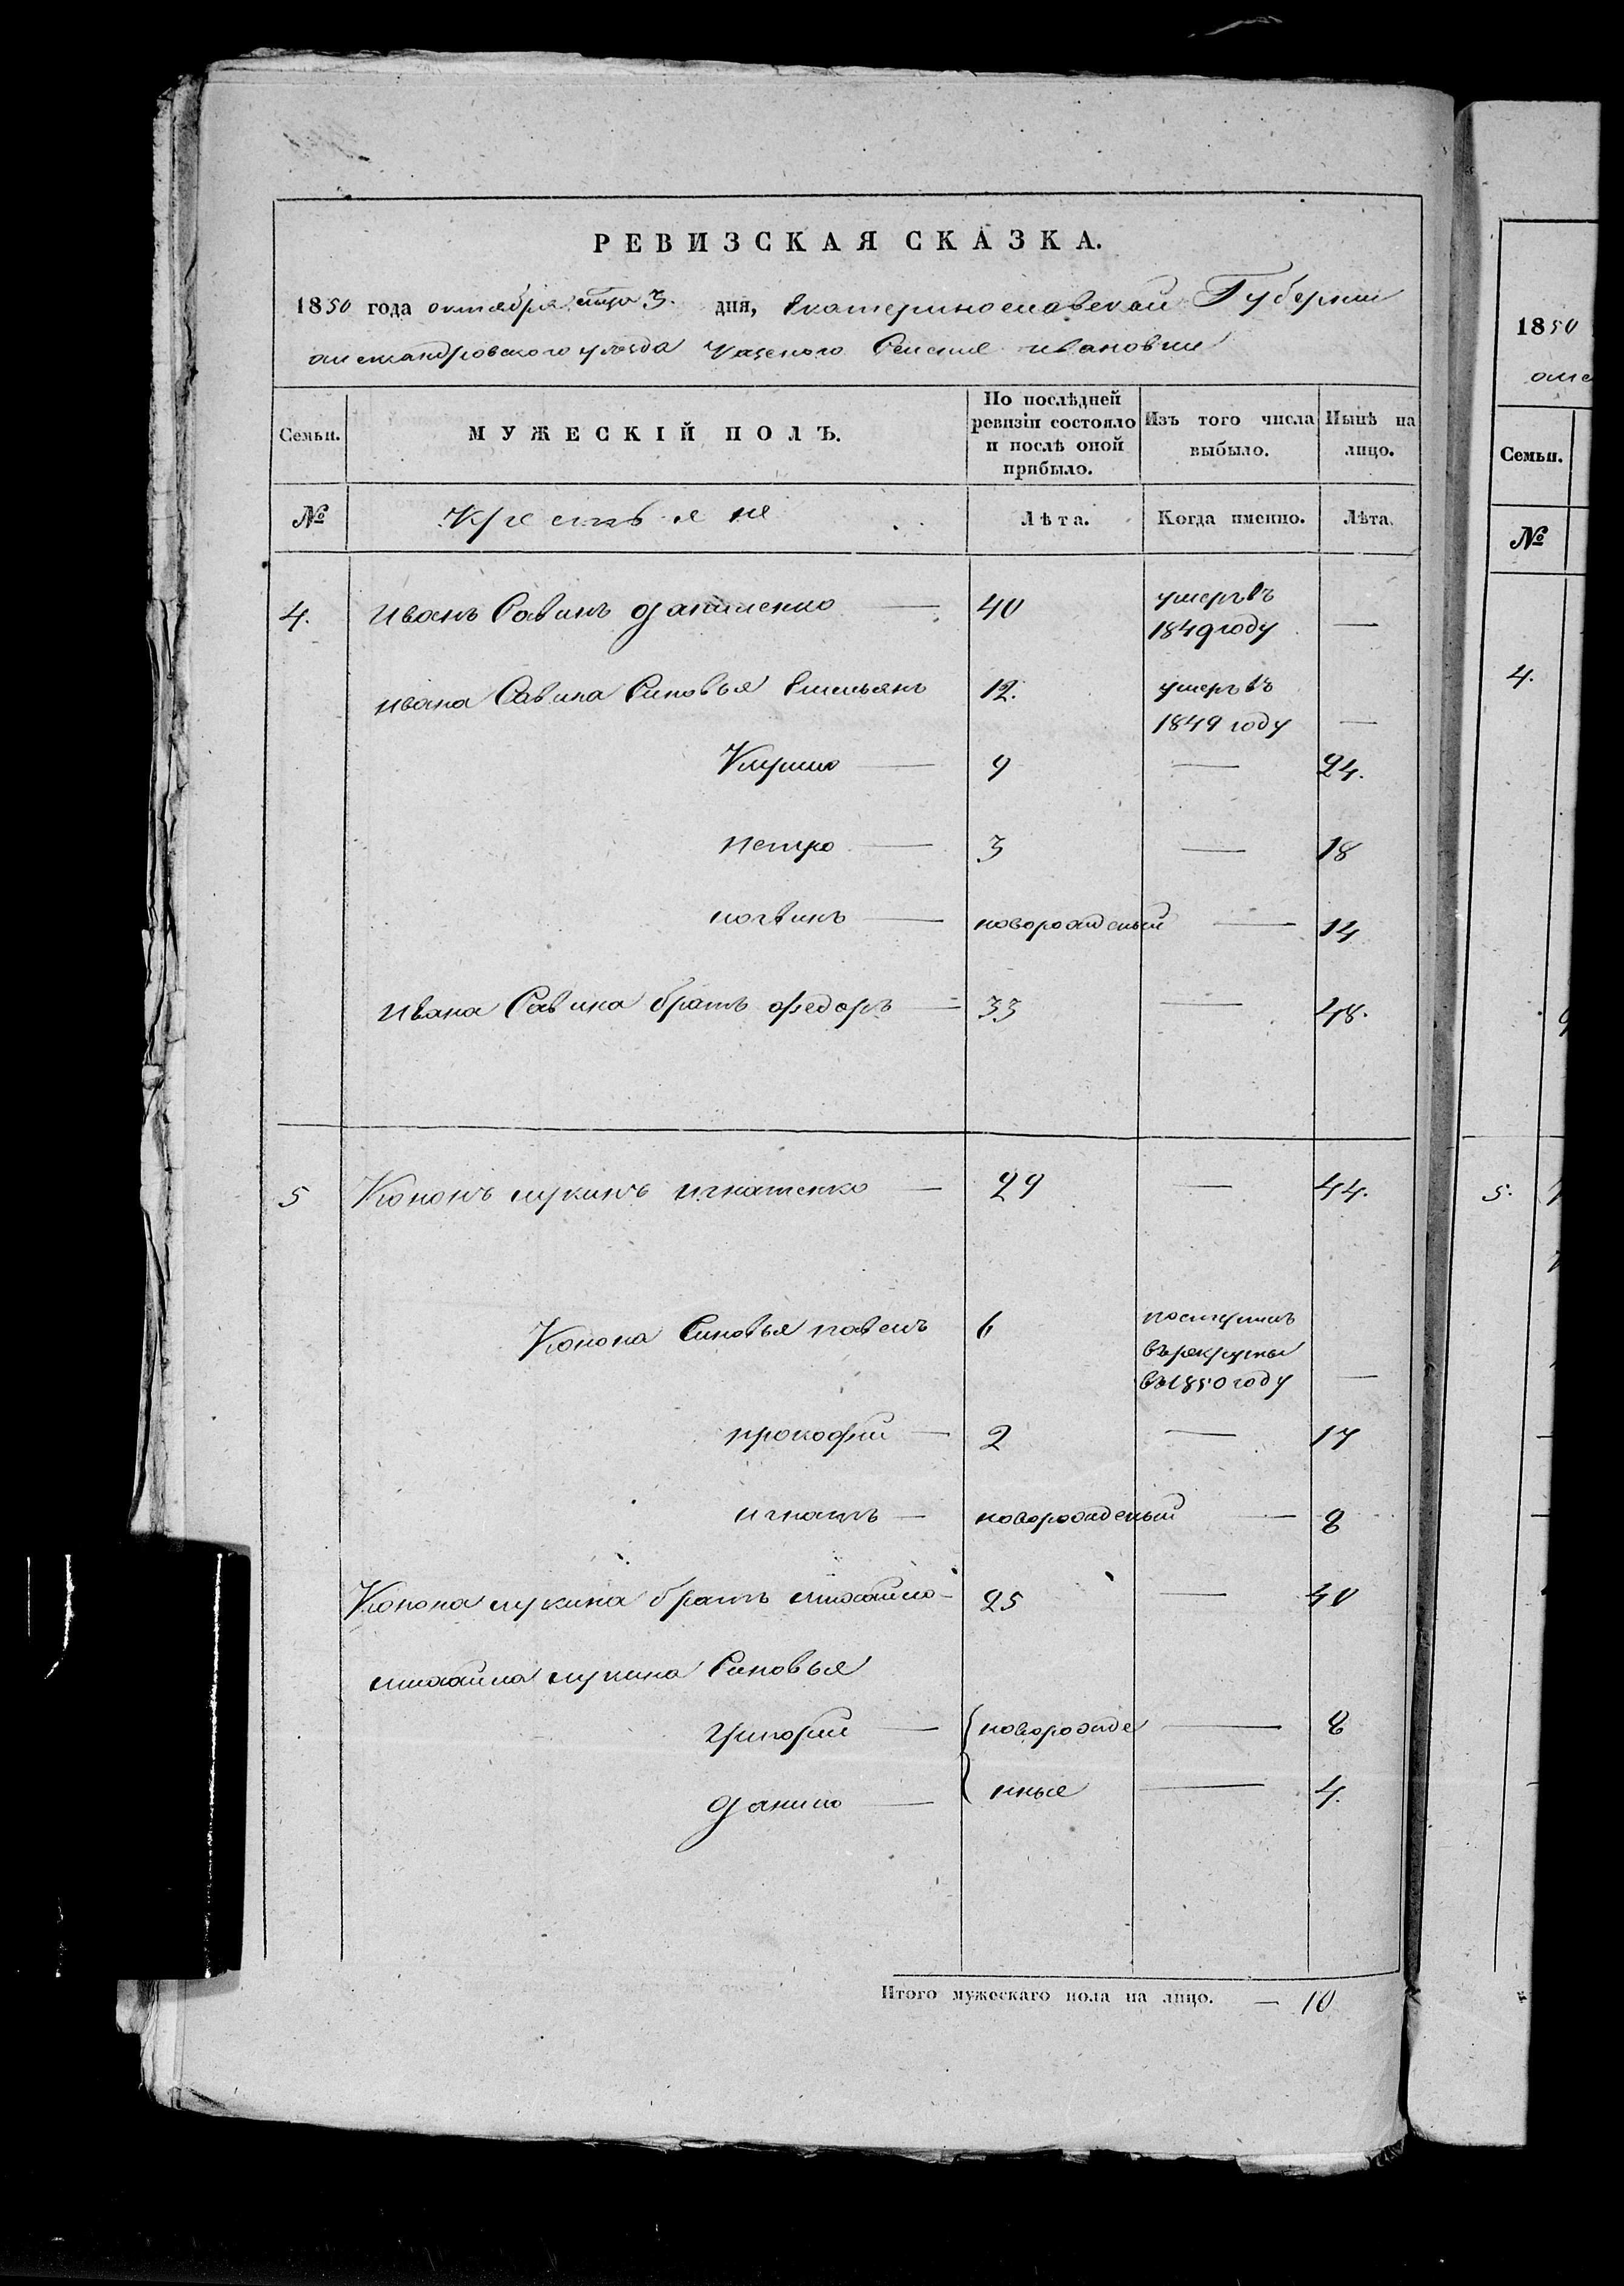 РЕВИЗСКАЯ СКАЗКА.
1850 года октября 3. дня, Екатеринославской Губернии
александровского уезда Казеного Селения ивановки
Семьи.
МУЖЕСКІЙ ПОЛЪ.
По послѣдней ревизіи состояло и послѣ оной прибыло.
Изъ того числа выбыло.
Нынѣ на лицо.
№
Крестьяне
Лѣта.
Когда именно.
Лѣта.
4. Иванъ Савинъ даниленко — 40 умеръ въ 1849 году —
ивана Савина Синовья Емельянъ 12. умеръ въ 1849 году —
Кирило — 9 — 24.
петро — 3 — 18
логвинъ — новорожденый — 14
Ивана Савина братъ федоръ — 33 — 48.
5 Кононъ лукинъ игнатенко — 29 — 44.
Конона Синовья павелъ 6 поступилъ въ рекруты въ 1850 году —
прокофий — 2 — 17
игнатъ — новорожденый — 8
Конона лукина братъ михайло — 25 — 40
михайла лукина Синовья
григорий — новорожде — 8
данило — нные — 4.
Итого мужескаго пола на лицо. — 10
1850
але
Семьи.
№
4.
5.